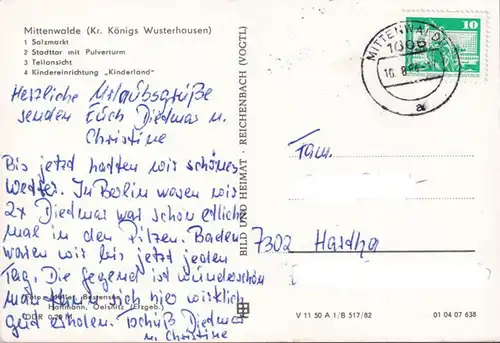 Mittenwalde (Kr. Königs Wusterhausen)
1 Salzmarkt
2 Stadttor mit Pulverturm
3 Teilansicht
4 Kindereinrichtung „Kinderland“
Herzliche Urlaubsgrüße
senden Euch Diedmar u.
Christine
Bis jetzt hatten wir schönes
Wetter. In Berlin waren wir
2x Diedmar war schon etlich
mal in den Pilzen. Baden
waren wir bis jetzt jeden
Tag. Die Gegend ist wunderschön
man kann sich hier wirklich
gut erholen. Tschüß Diedmar
u. Christine
Hoffmann, Oelsnitz (Erzgeb.)
DDR 0,20 M
BILD UND HEIMAT · REICHENBACH (VOGTL)
MITTENWALDE
1606
10. 8.
a
10
Fam.
7302 Hartha
V 11 50 A 1/B 517/82
01 04 07 638